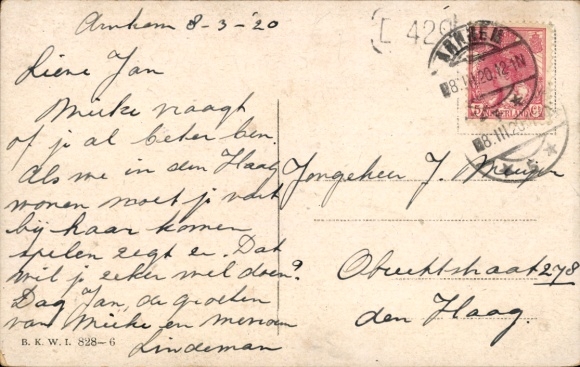 Arnhem 8-3-'20
[L 429
ARNHEM
8.III.20.12-1N
5 NEDERLAND Ct
8.III.20
Lieve Jan
Mieke vraagt
of je al beter ben.
Als we in den Haag
wonen moet je vast
bij haar komen
spelen zegt ze. Dat
wil je zeker wel doen?
Dag Jan, de groeten
van Mieke en mevrouw
Lindeman
Jongeheer J.
Obrechtstraat 278
den Haag.
B. K. W. I. 828-6